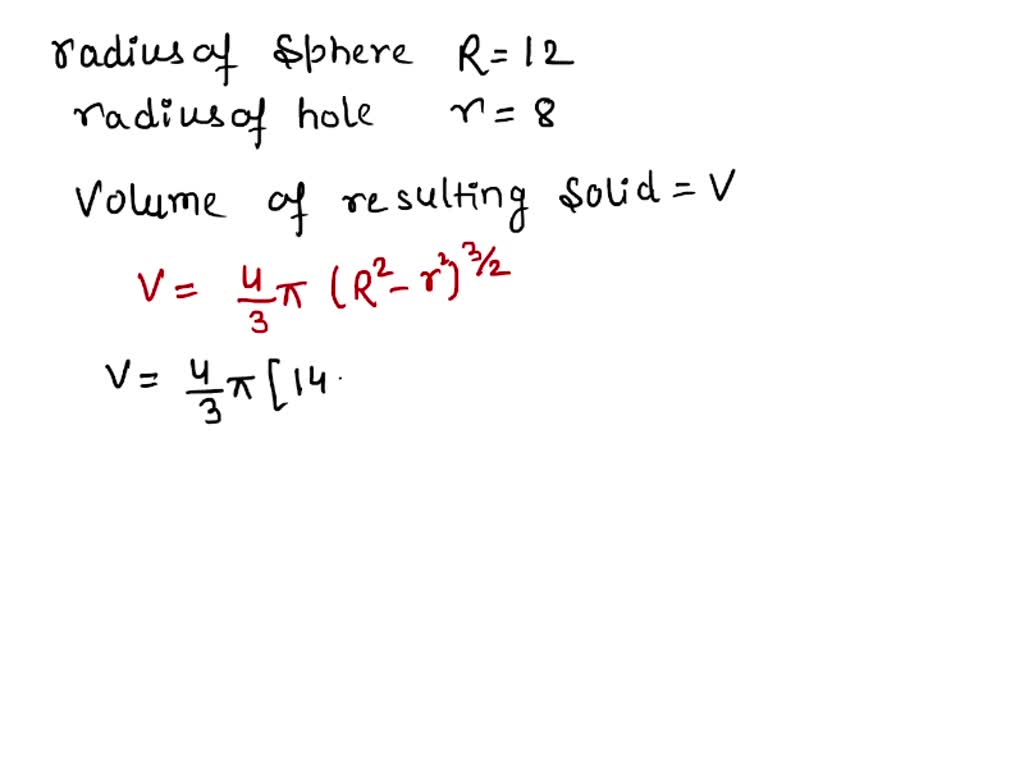 radius of sphere R = 12
radius of hole r = 8
Volume of resulting solid = V
V = 4/3 π (R² - r²)^3/2
V = 4/3 π [14